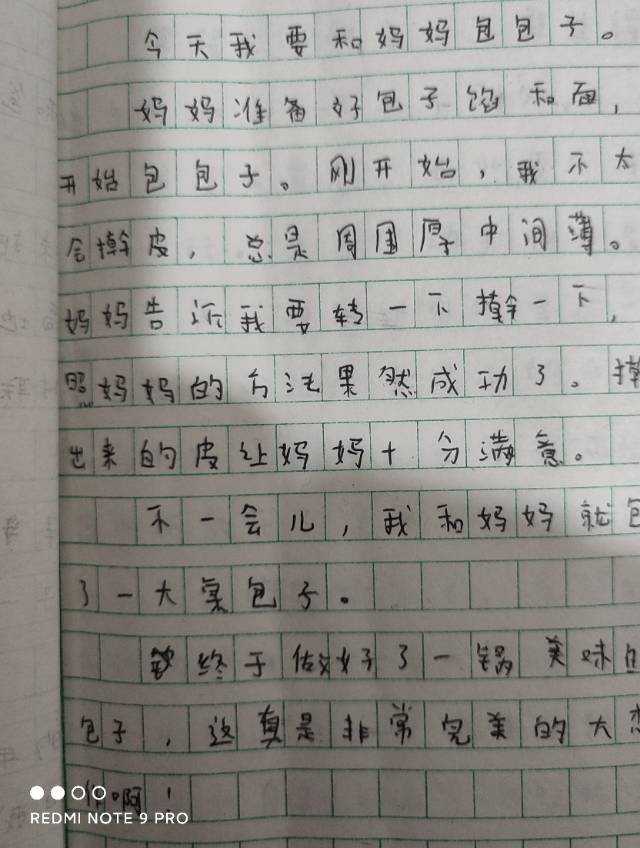 今天我要和妈妈包包子。
妈妈准备好包子馅和面，
开始包包子。刚开始，我不太
会擀皮，总是周围厚中间薄。
妈妈告诉我要转一下擀一下，
照妈妈的方法果然成功了。擀
出来的皮让妈妈十分满意。
不一会儿，我和妈妈就包
了一大案包子。
终于做好了一锅美味的
包子，这真是非常完美的大杰
作啊！
REDMI NOTE 9 PRO